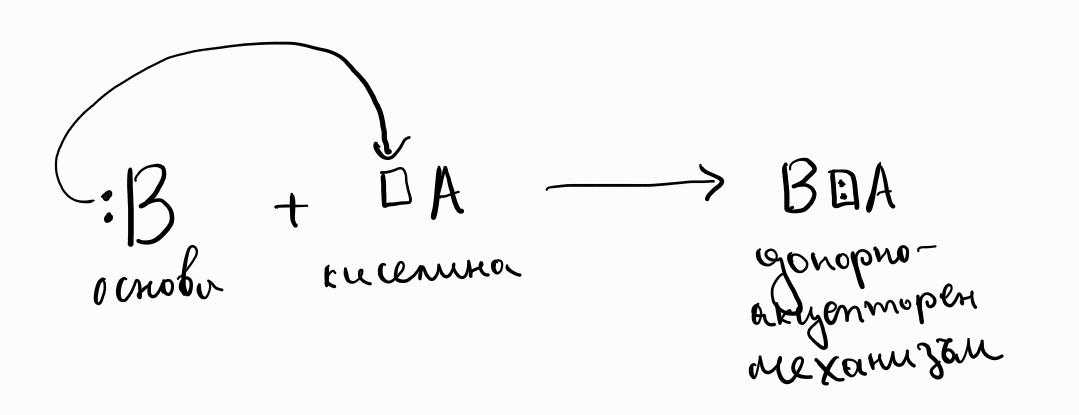 :B + □ A → B⍠A
основа киселина
донорно-
акцепторен
механизъм